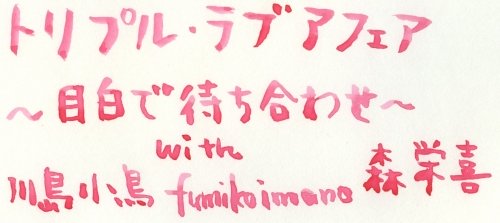 トリプル・ラブアフェア
～目白で待ち合わせ～
with
川島小鳥 fumikoimano 森栄喜